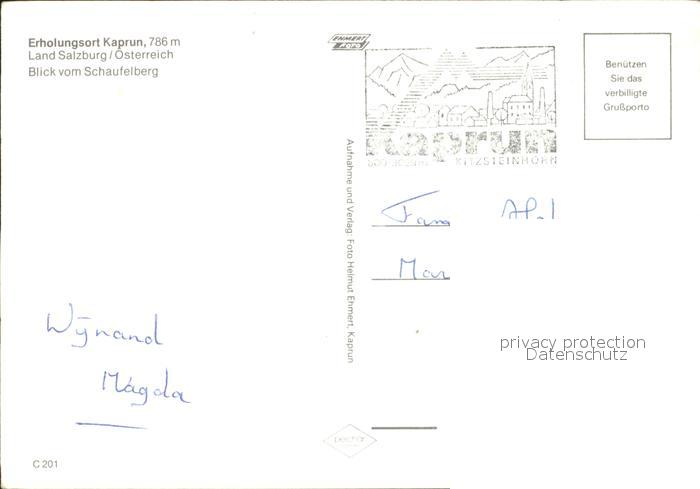 Erholungsort Kaprun, 786 m
Land Salzburg / Österreich
Blick vom Schaufelberg
EHMERT
Benützen
Sie das
verbilligte
Grußporto
kaprun
KITZSTEINHORN
Aufnahme und Verlag: Foto Helmut Ehmert, Kaprun
Fam
Mar
Wijnand
Magda
privacy protection
Datenschutz
C 201